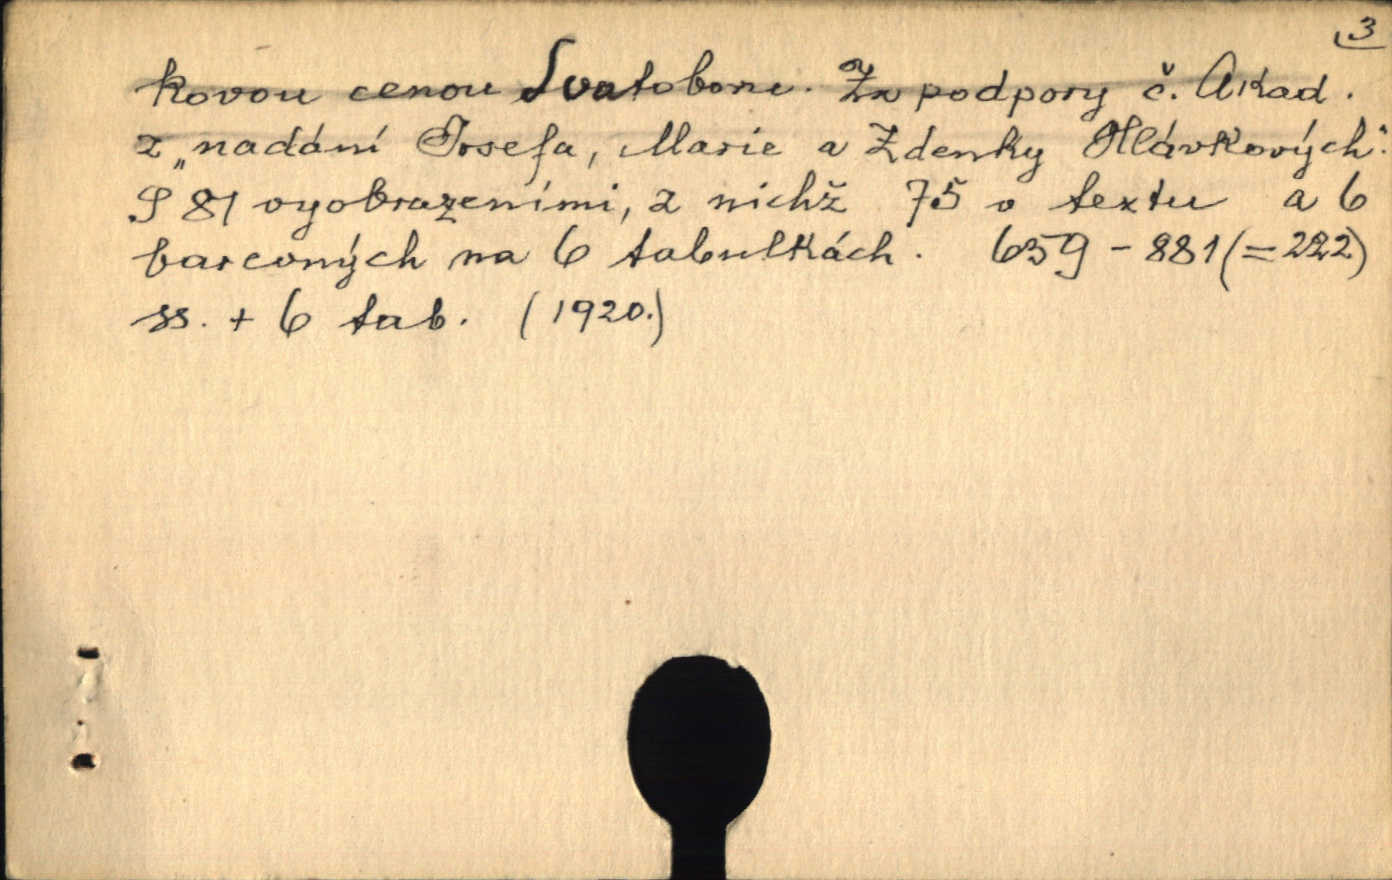 3
kovou cenou Svatoboru. Za podpory č. Akad.
z „nadání Josefa, Marie a Zdenky Hlávkových“.
S 81 vyobrazeními, z nichž 75 v textu a 6
barevných na 6 tabulkách. 659 - 881 (= 222)
ss. + 6 tab. (1920.)